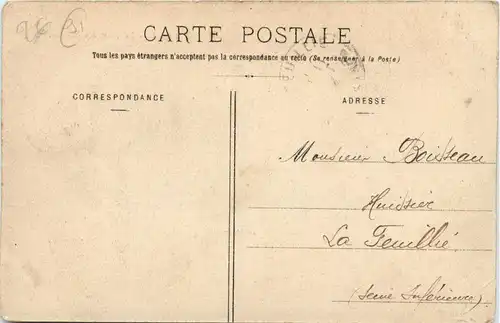 CARTE POSTALE
Tous les pays étrangers n'acceptent pas la correspondance au recto (Se renseigner à la Poste)
CORRESPONDANCE
ADRESSE
Monsieur Boisseau
Huissier
La Feuillie
(Seine Inférieure)